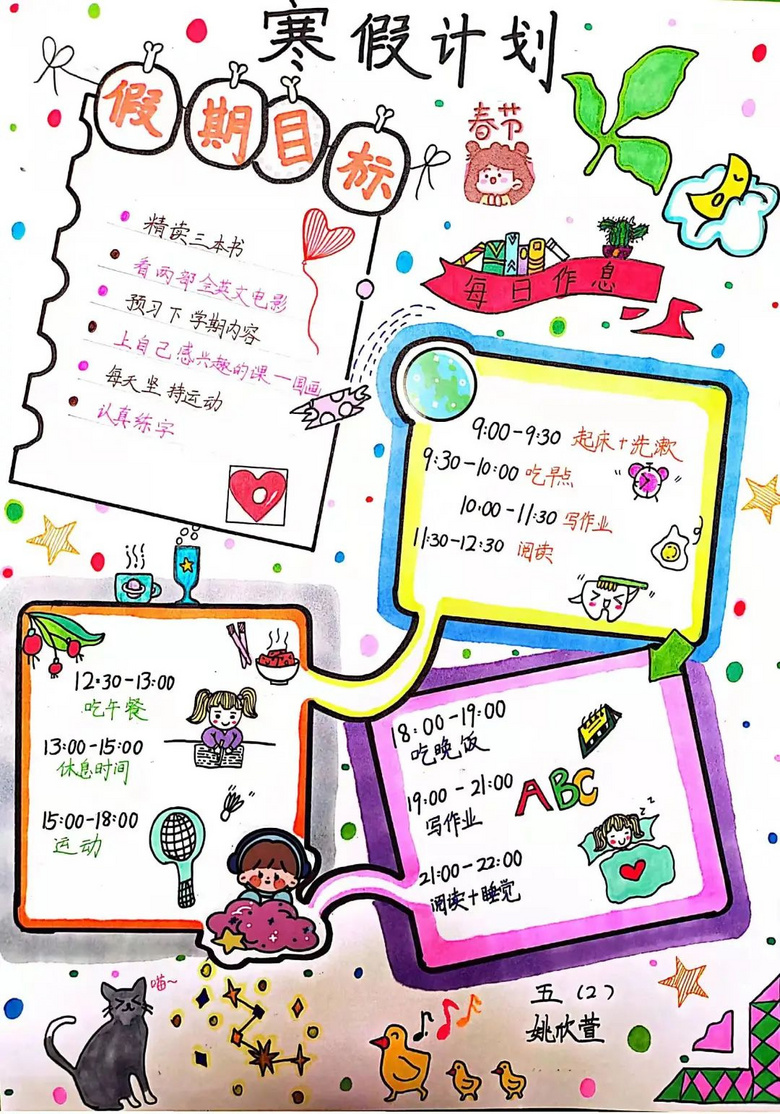 寒假计划
假期目标
春节
精读三本书
看两部全英文电影
预习下学期内容
上自己感兴趣的课—国画
每天坚持运动
认真练字
每日作息
9:00-9:30 起床+洗漱
9:30-10:00 吃早点
10:00-11:30 写作业
11:30-12:30 阅读
12:30-13:00
吃午餐
13:00-15:00
休息时间
15:00-18:00
运动
18:00-19:00
吃晚饭
19:00-21:00
写作业
ABC
21:00-22:00
阅读+睡觉
zz
喵~
五（2）
姚欣萱